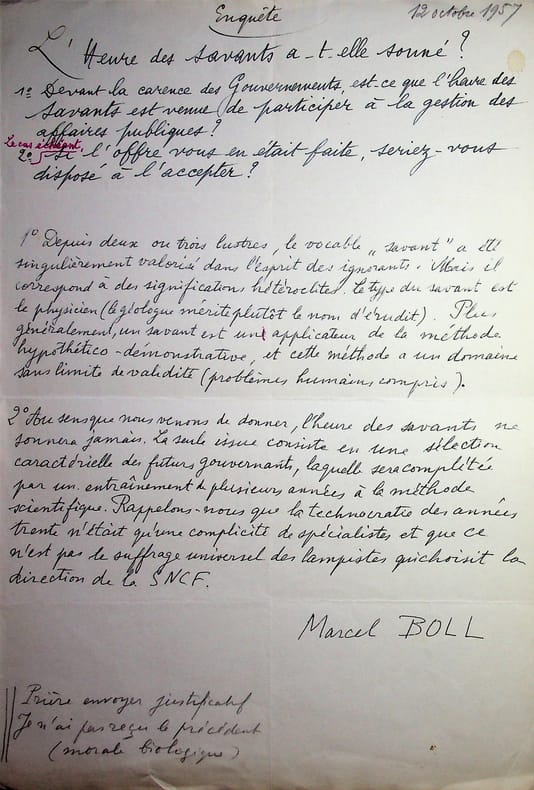 Enquête
12 octobre 1957
L'Heure des savants a-t-elle sonné ?
1º Devant la carence des Gouvernements, est-ce que l'heure des
savants est venue de participer à la gestion des
affaires publiques ?
Le cas échéant,
2º si l'offre vous en était faite, seriez-vous
disposé à l'accepter ?
1º Depuis deux ou trois lustres, le vocable „savant" a été
singulièrement valorisé dans l'esprit des ignorants. Mais il
correspond à des significations hétéroclites. Le type du savant est
le physicien (le géologue mérite plutôt le nom d'érudit). Plus
généralement, un savant est un applicateur de la méthode
hypothético-démonstrative, et cette méthode a un domaine
sans limite de validité (problèmes humains compris).
2º Au sens que nous venons de donner, l'heure des savants ne
sonnera jamais. La seule issue consiste en une sélection
caractérielle des futurs gouvernants, laquelle sera complétée
par un entraînement de plusieurs années à la méthode
scientifique. Rappelons-nous que la technocratie des années
trente n'était qu'une complicité de spécialistes et que ce
n'est pas le suffrage universel des lampistes qui choisit la
direction de la SNCF.
Marcel BOLL
Prière envoyer justificatif
Je n'ai pas reçu le précédent
(morale biologique)